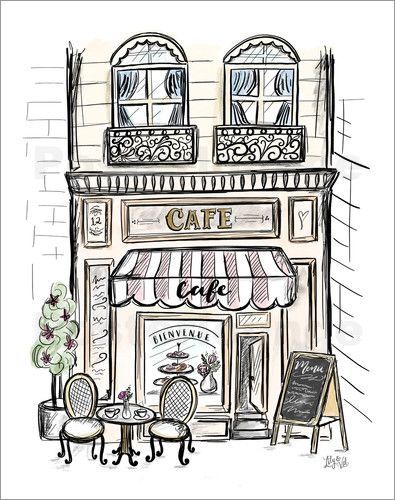 12
CAFE
Cafe
BIENVENUE
Menu
Lily & Val